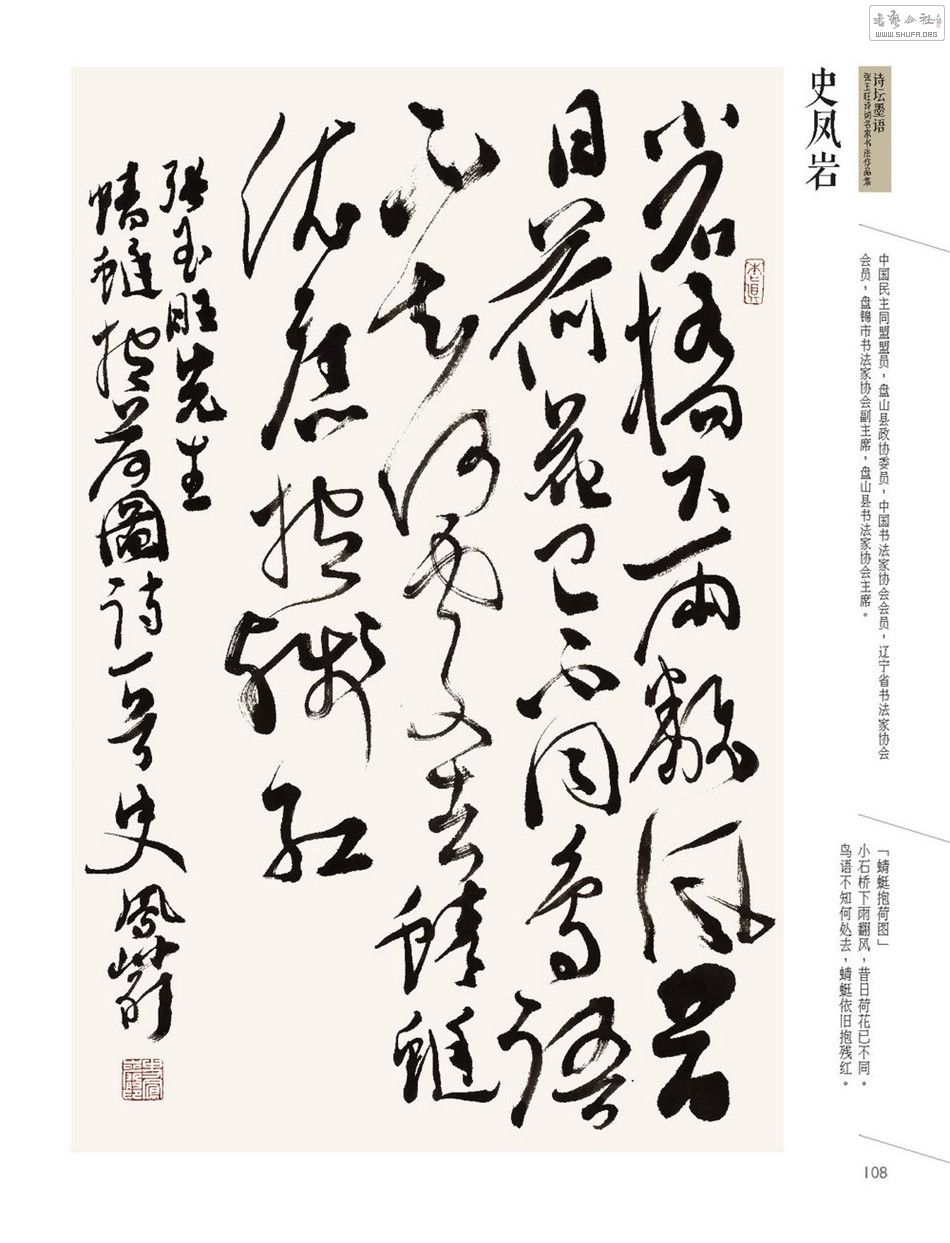 書藝公社
WWW.SHUFA.ORG
诗坛墨语
张玉旺诗词名家书法作品集
史凤岩
中国民主同盟盟员，盘山县政协委员，中国书法家协会会员，辽宁省书法家协会
会员，盘锦市书法家协会副主席，盘山县书法家协会主席。
「蜻蜓抱荷图」
小石桥下雨翻风，昔日荷花已不同。
鸟语不知何处去，蜻蜓依旧抱残红。
小石橋下雨翻風昔
日荷花已不同鳥語
不知何處去蜻蜓
依舊抱殘紅
張玉旺先生
蜻蜓抱荷圖詩一首史鳳巖
108